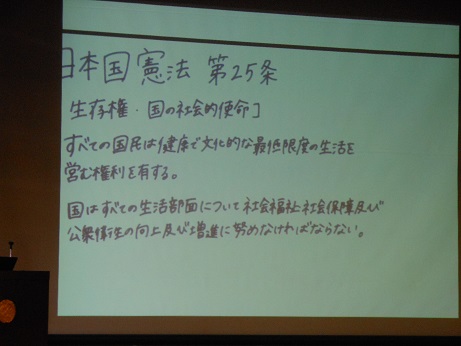 日本国憲法 第25条
生存権・国の社会的使命]
すべての国民は健康で文化的な最低限度の生活を
営む権利を有する。
国はすべての生活部面について社会福祉社会保障及び
公衆衛生の向上及び増進に努めなければならない。